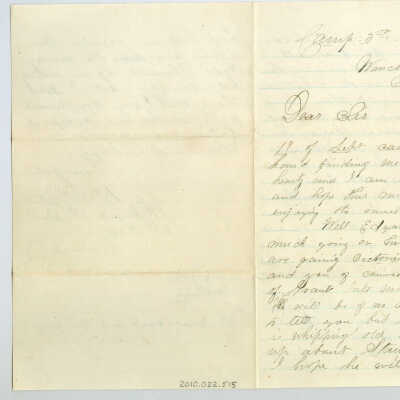 Camp 3rd
Winc
Dear Sis
of Sept
hand finding me
hearty and I am
and hope this
enjoying the same
Well Edga
much going on
are gaining victories
and you of course
of Grant
He will be
to tell you but
is whipping old
up about Stau
I hope he will
2010.022.515